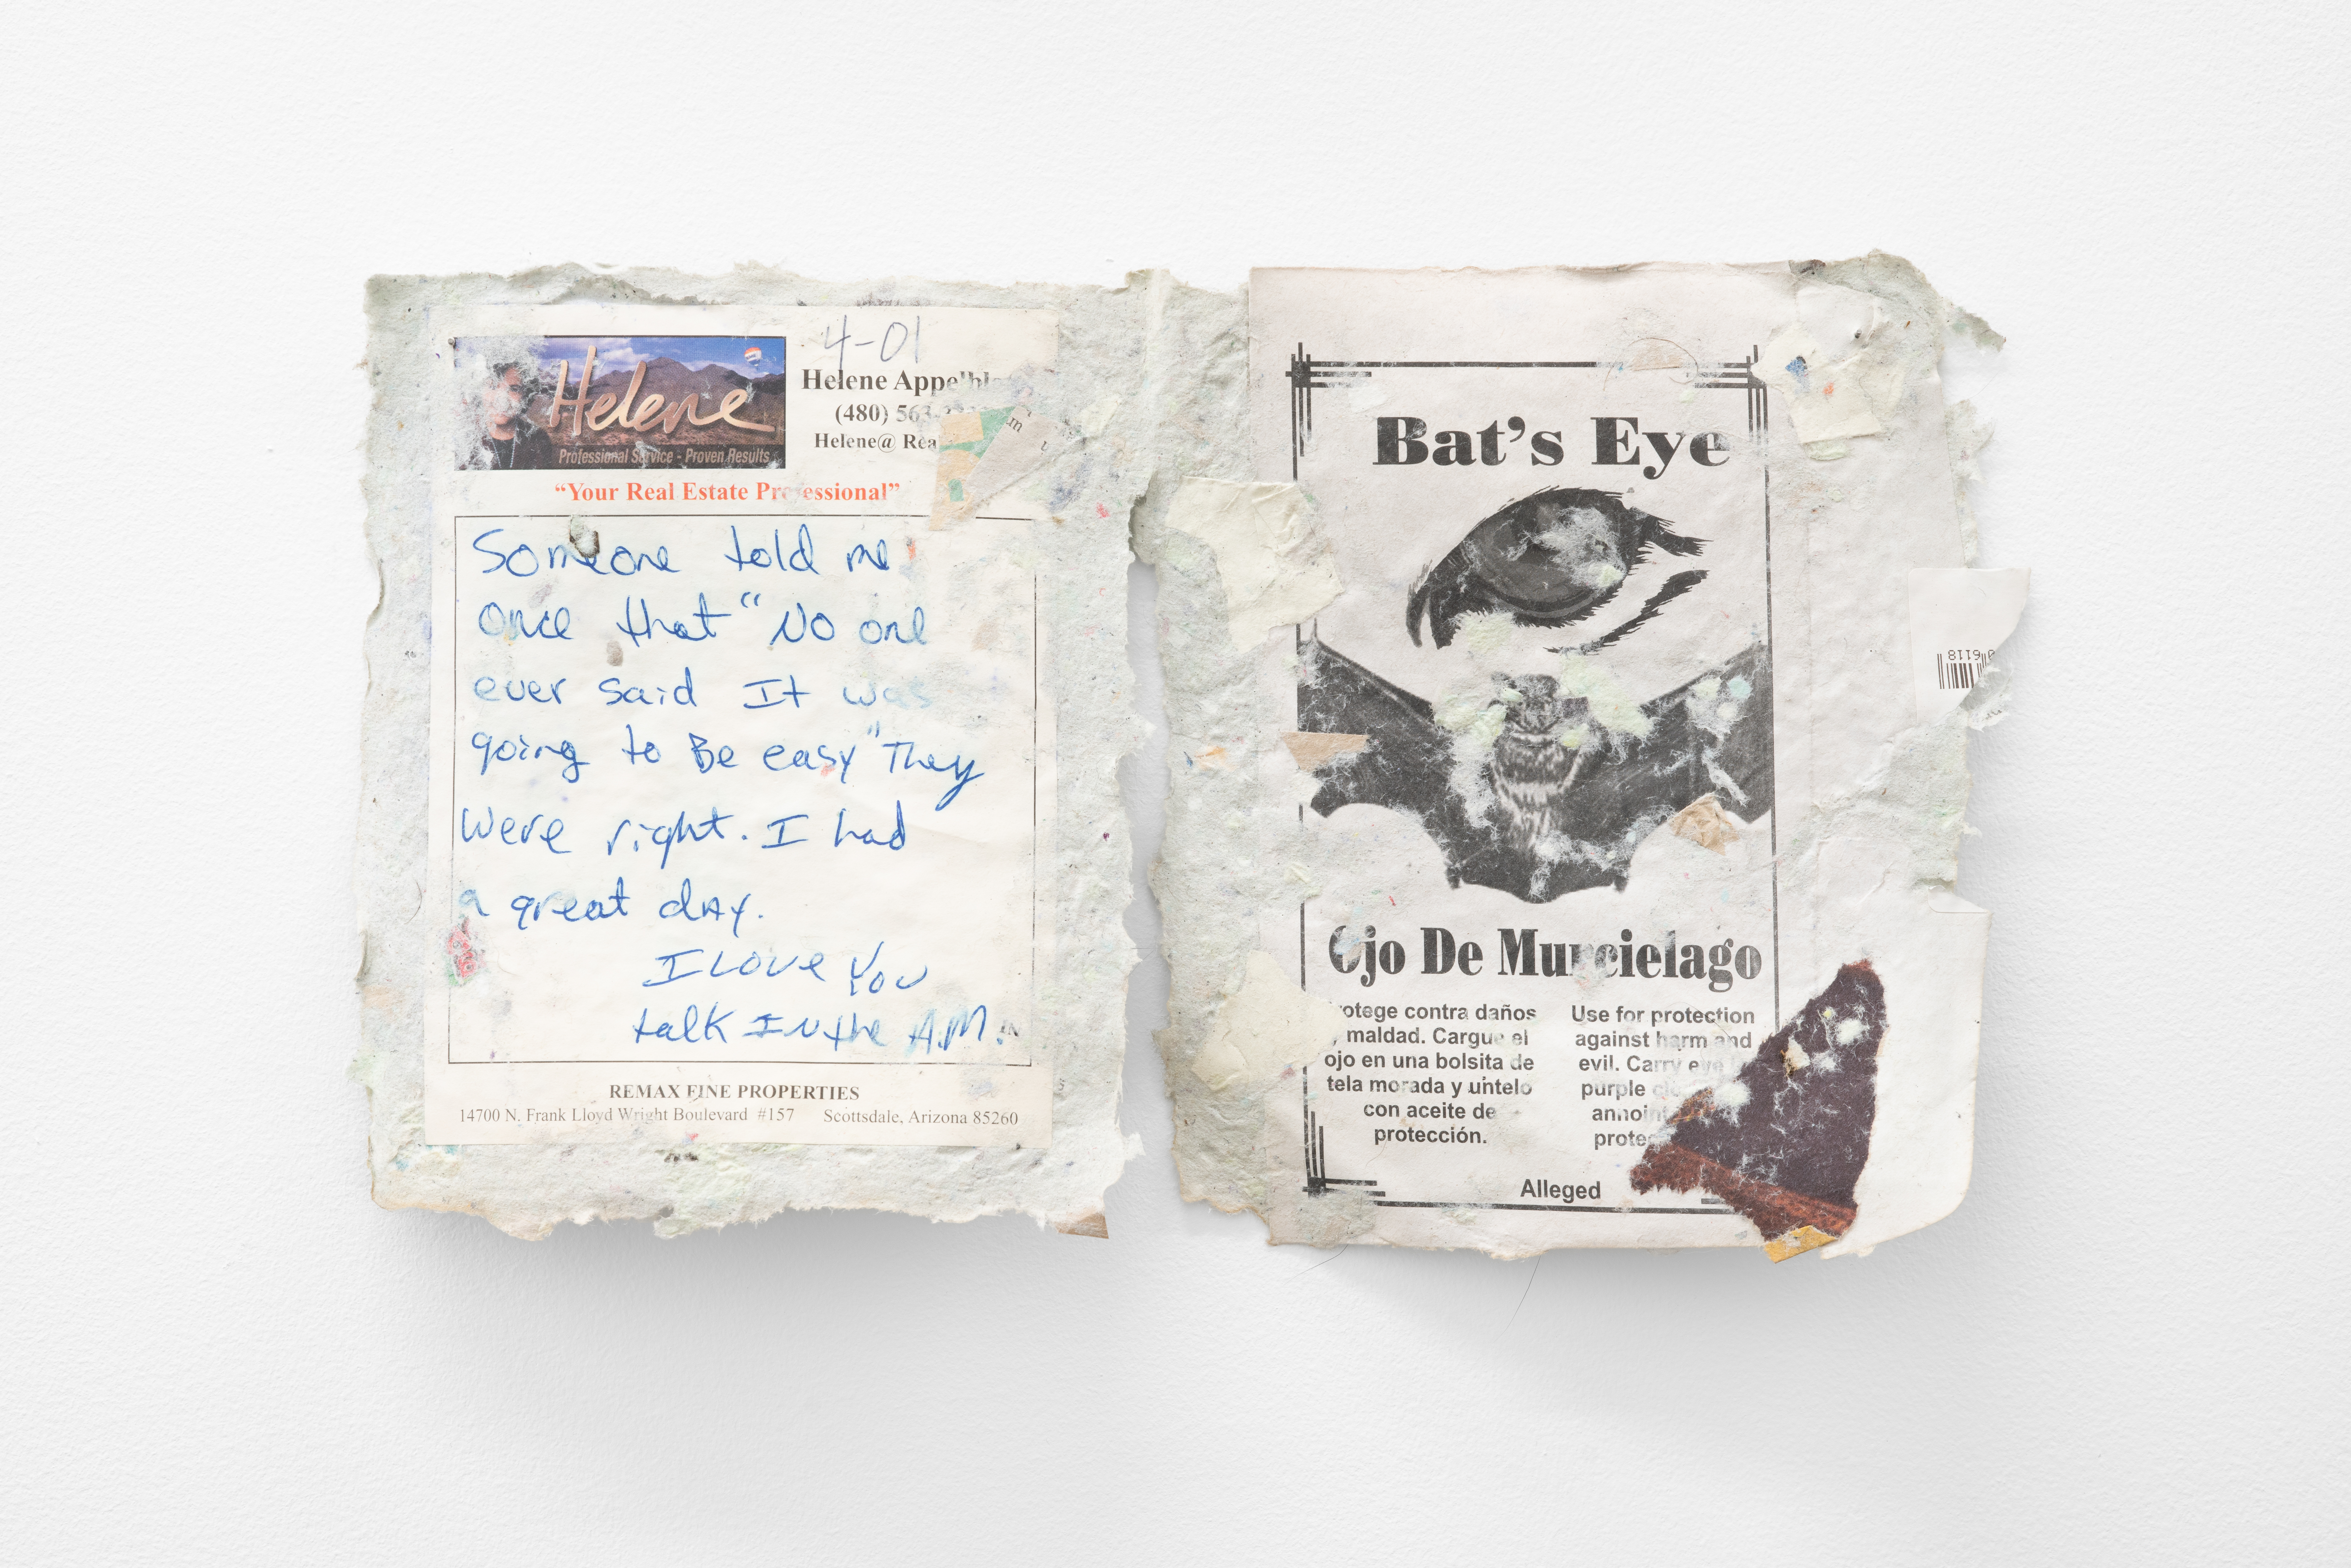 4-01
Helene
Professional Service - Proven Results
Helene
(480)
Helene@
“Your Real Estate Professional”
Someone told me
once that “No one
ever said It was
going to Be easy" They
were right. I had
a great dAy.
I Love You
talk IN the A.M.
REMAX FINE PROPERTIES
14700 N. Frank Lloyd Wright Boulevard #157 Scottsdale, Arizona 85260
Bat’s Eye
Ojo De Murcielago
otege contra daños
maldad. Cargue el
ojo en una bolsita de
tela morada y untelo
con aceite de
protección.
Use for protection
against harm and
evil. Carry eye
purple
Alleged
6118